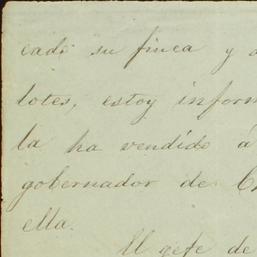 cado su finca y
lotes, estoy inform
la ha vendido á
gobernador de
ella.
El gefe de